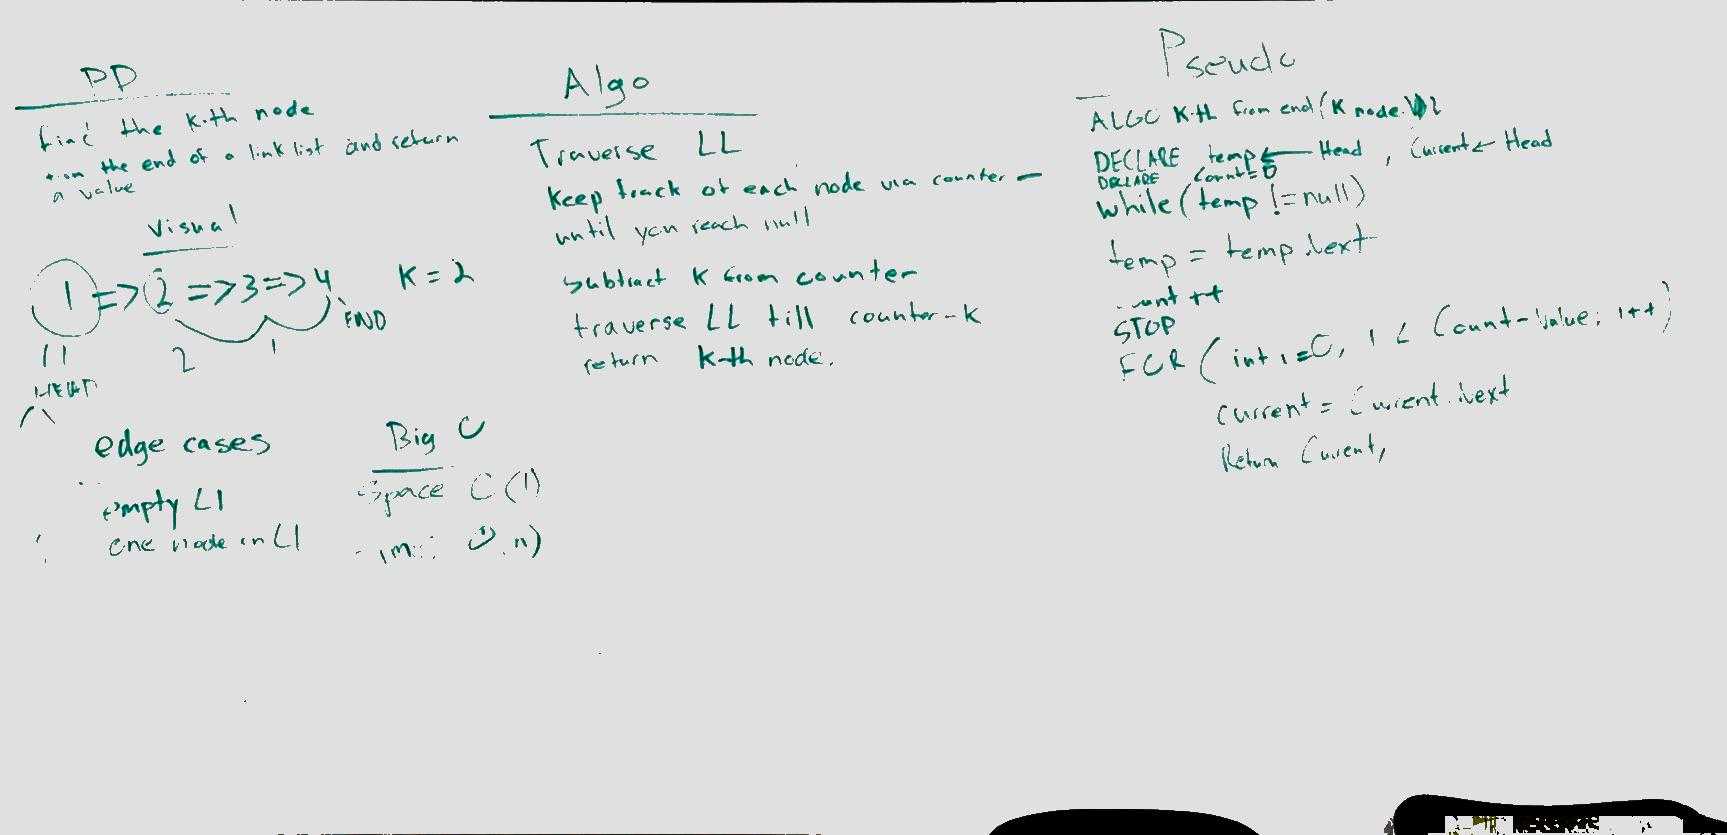 PD
find the K-th node
the end of a link list and return
a value
Visual
1 => 2 => 3 => 4 K = 2
END
2 1
HEAD
edge cases
empty LL
one node in LL
Big O
Space O(1)
O(n)
Algo
Traverse LL
Keep track of each node via counter -
until you reach null
subtract K from counter
traverse LL till counter-k
return K-th node.
Pseudo
ALGO K-th from end (K node.
DECLARE temp ← Head, Current ← Head
DECLARE Count = 0
while (temp != null)
temp = temp.Next
count ++
STOP
FOR (int i = 0, i < Count - Value; i++)
Current = Current.Next
Return Current,